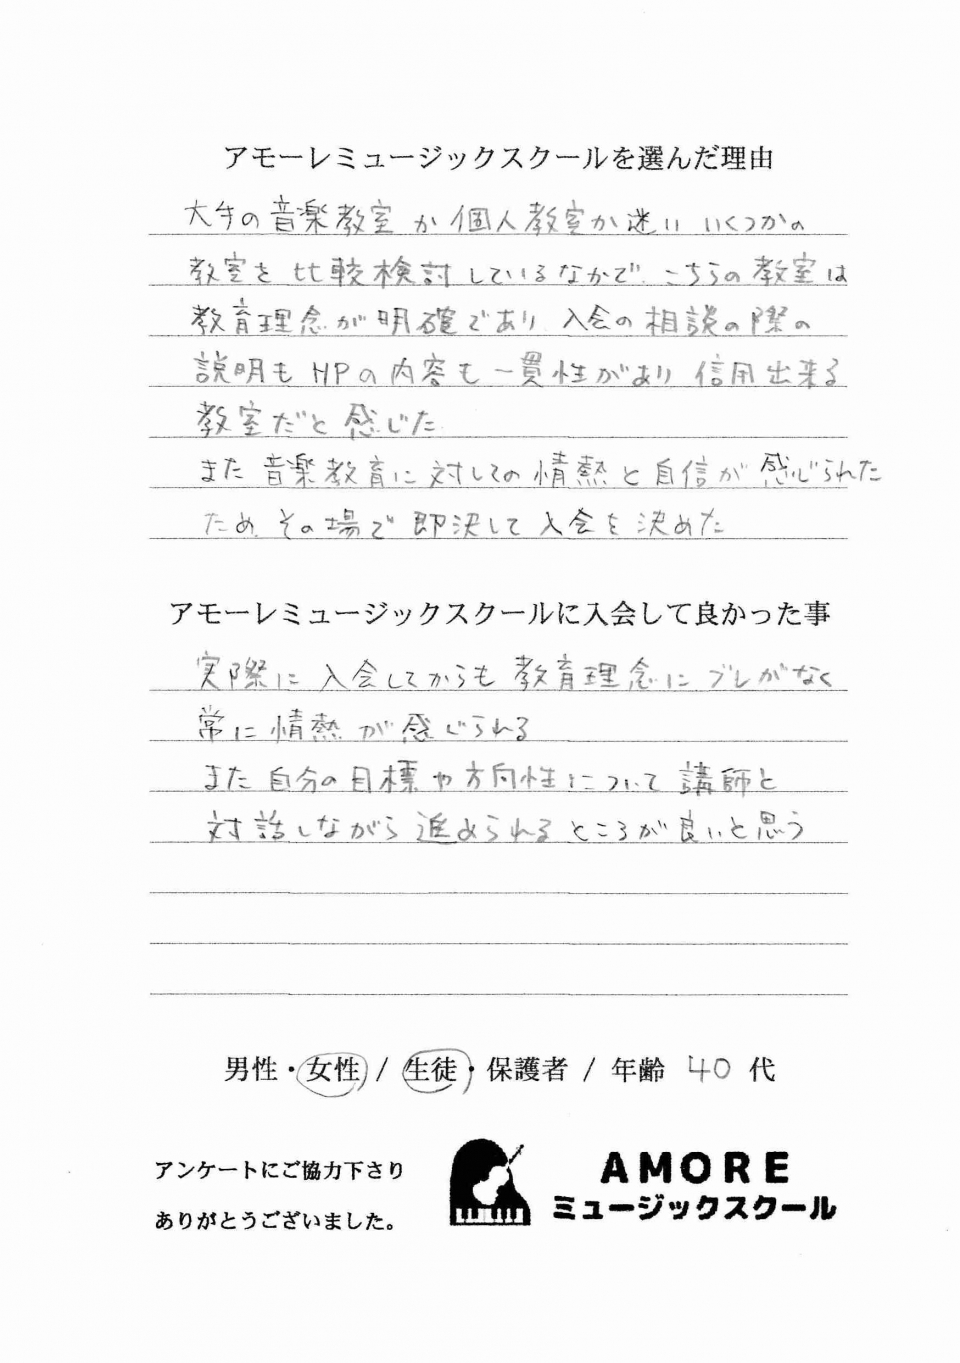 アモーレミュージックスクールを選んだ理由
大手の音楽教室か個人教室か迷い いくつかの
教室を比較検討しているなかで、こちらの教室は
教育理念が明確であり 入会の相談の際の
説明もHPの内容も一貫性があり 信用出来る
教室だと感じた
また音楽教育に対しての情熱と自信が感じられた
ため、その場で即決して入会を決めた
アモーレミュージックスクールに入会して良かった事
実際に入会してからも教育理念にブレがなく
常に情熱が感じられる
また自分の目標や方向性について講師と
対話しながら進められるところが良いと思う
男性・女性 / 生徒・保護者 / 年齢 40 代
アンケートにご協力下さり
ありがとうございました。
AMORE
ミュージックスクール